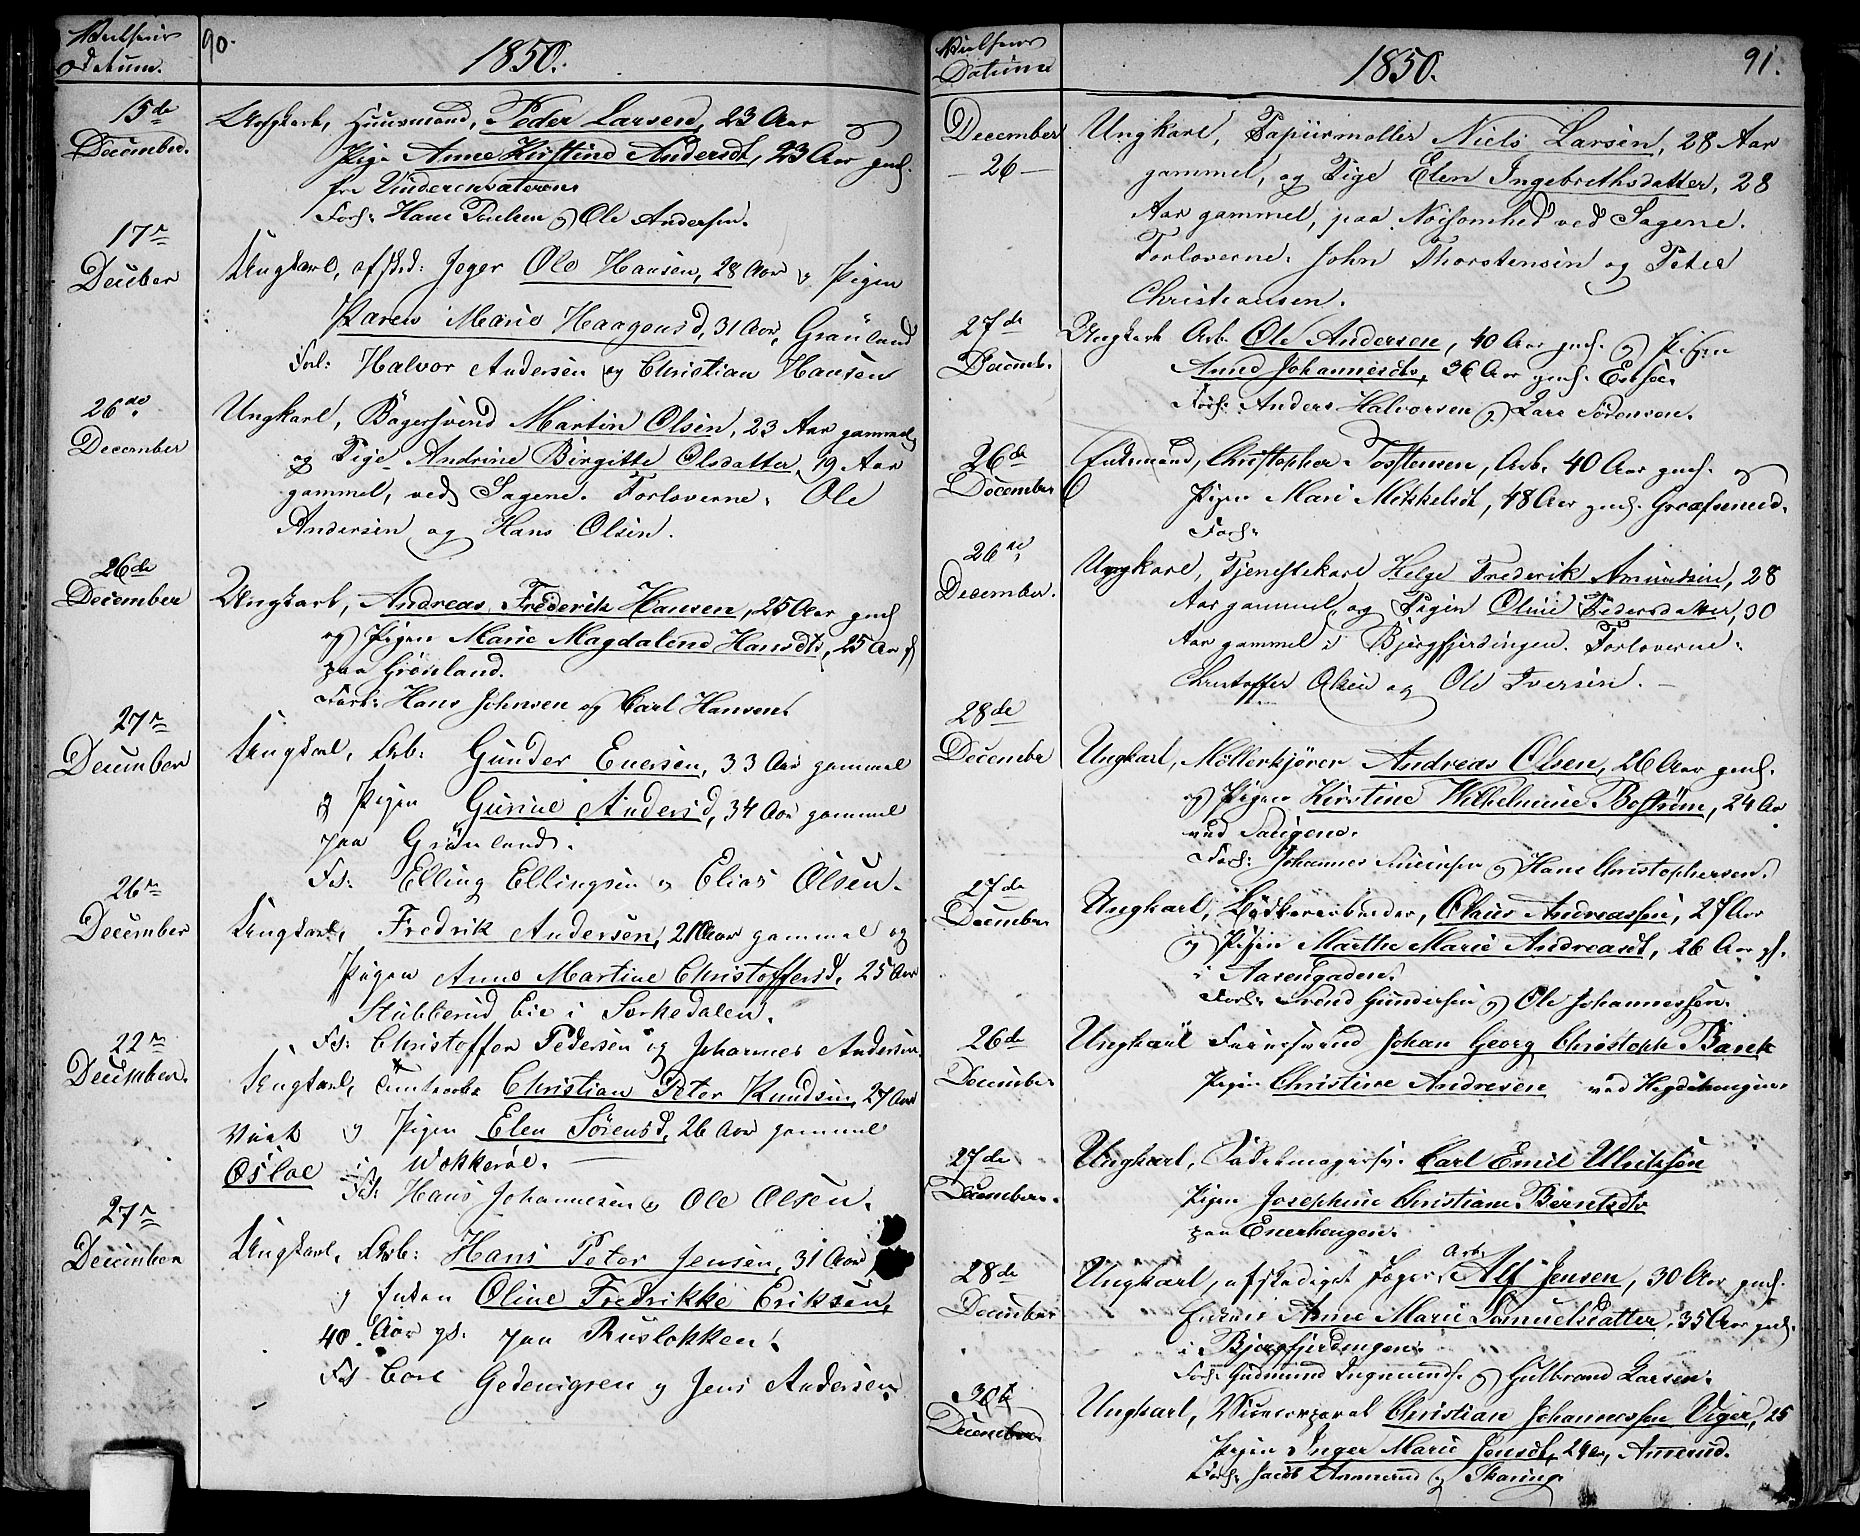 90.
1850.
15de
December.
Ungkarl, Huusmand, Peder Larsen, 23 Aar og
Pige Anne Kirstine Andersdt, 23 Aar gml.
fra Vinderen
Forl: Hans Poulsen og Ole Andersen.
17n
December
Ungkarl, afsked: Jæger Ole Hansen, 28 Aar & Pigen
Karen Marie Haagensd, 31 Aar, Grønland
Forl: Halvor Andersen og Christian Hansen
26de
December
Ungkarl, Bagersvend Martin Olsen, 23 Aar gammel,
og Pige Andrine Birgitte Olsdatter, 19 Aar
gammel, ved Sagene. Forloverne: Ole
Andersen og Hans Olsen.
26de
December
Ungkarl, Andreas Frederik Hansen, 25 Aar gml
og Pigen Marie Magdalene Hansdtr, 25 Aar gl
paa Grønland.
Forl: Hans Johnsen og Carl Hansen.
27n
December
Ungkarl, Arb: Gunder Enersen, 33 Aar gammel
og Pigen Gurine Andersd, 34 Aar gammel
paa Grønland.
Fs: Elling Ellingsen og Elias Olsen.
26n
December
Ungkarl, Fredrik Andersen, 21 Aar gammel og
Pigen Anne Martine Christoffersd. 25 Aar
Stubberud Eie i Sørkedalen.
Fs: Christoffer Pedersen og Johannes Andersen
22n
December.
Ungkarl, Christian Peter Knudsen, 27 Aar
Viet og Pigen Elen Sörensd, 26 Aar gammel
Osloe i Wækkerøe.
Fs: Hans Johannesen og Ole Olsen.
27n
December
Ungkarl, Arb: Hans Peter Jensen, 31 Aar
og Enken Oline Fredrikke Eriksen,
40 Aar gl. paa Ruseløkken.
Fs Carl Gedenigsen og Jens Andersen
Datum
91.
1850.
December
26
Ungkarl, Papiirmøller Niels Larsen, 28 Aar
gammel, og Pige Elen Ingebrethsdatter, 28
Aar gammel, paa Nøisomhed ved Sagene.
Forloverne: John Thorstensen og Peter
Christiansen.
27de
Decemb.
Ungkarl Arb. Ole Andersen, 40 Aar gml. og Pigen
Anne Johannesdtr, 36 Aar gml.
Forl: Anders Halvorsen og Lars Sörensen.
26de
December
Enkemand, Christopher Tostensen, Arb. 40 Aar gml. og
Pigen Mari Mikkelsdt, 48 Aar gml. Græfsenend.
Forl:
26de
December.
Ungkarl, Tjenestekarl Helge Frederik Amundsen, 28
Aar gammel, og Pigen Oline Pedersdatter, 30
Aar gammel i Bjergfjerdingen. Forloverne:
Christoffer Olsen og Ole Iversen.
28de
December
Ungkarl, Møllerkjører Andreas Olsen, 26 Aar gml.
og Pigen Kirstine Wilhelmine Boström, 24 Aar
ved Saugene.
Forl: Johannes Simensen og Hans Christophersen.
27de
December
Ungkarl, Bödkerarbeider, Olaus Andreassen, 27 Aar
og Pigen Marthe Marie Andreasdt, 26 Aar gl.
i Aasengaden.
Forl: Trond Gundersen og Ole Johannessen.
26de
December
Ungkarl Johan Georg Christoph Barck
Pigen Christine Andresen ved Hegdehaugen
27de
December.
Ungkarl, Sadelmagersv. Carl Emil Ulrichsen
Pigen Josephine Christiane Berntsdtr
paa Enerhougen.
28de
December
Ungkarl, afskediget Jæger, Arb. Alf Jensen, 30 Aar gml.
Enken Anne Marie Samuelsdatter, 35 Aar gml.
i Bjergfjerdingen.
Forl: Gudmund Ingmunds. og Gulbrand Larsen.
30t
December.
Ungkarl, Christian Johannessen Viger, 25
Pigen Inger Marie Jensdt, 24 Aar, Ammerud.
Forl: Jacob Ammerud og